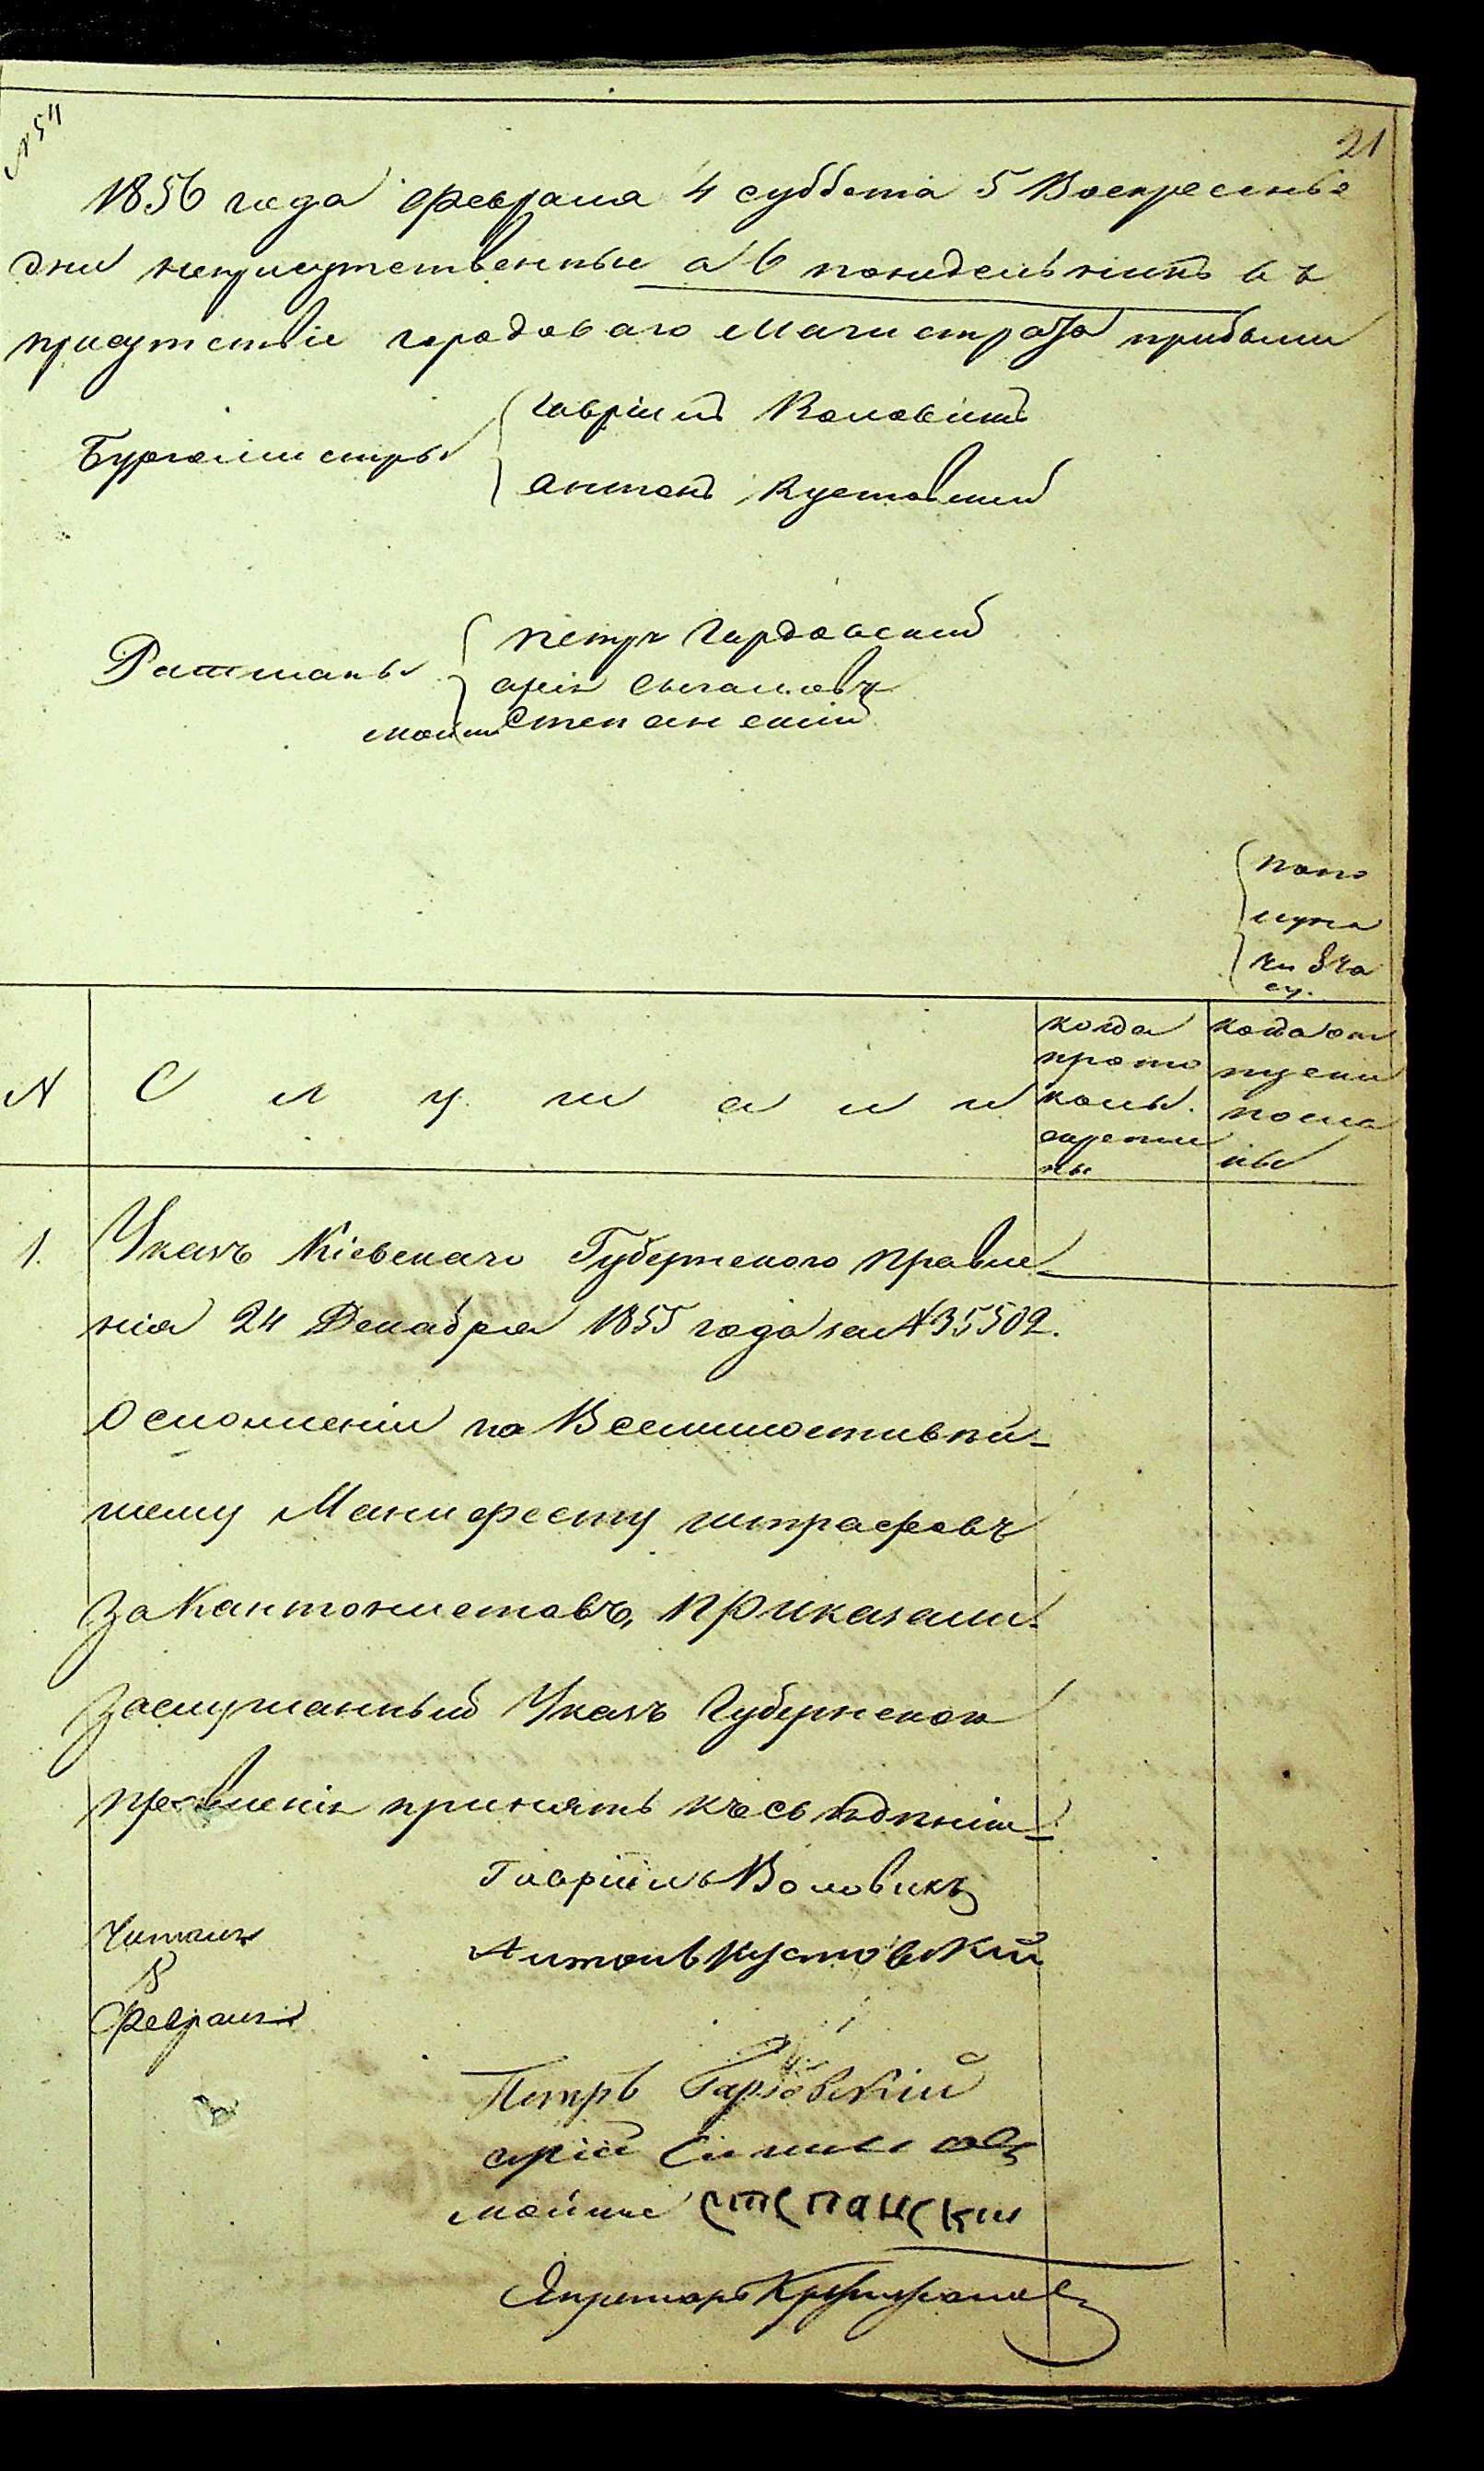 № 54
21
1856 года Февраля 4 суббота 5 Воскресенье
дни неприсутственные а 6 понидельникъ въ
присутствіе городоваго Магистрата прибыли
Бургомистры
Гавріилъ Воловикъ
Антонъ Кустовский
Ратманы
Петръ Гардовский
Арія
Мошко Степанский
попо
луно
чи
су.
N
С л у ш а л и
когда
прото
колы
скрепле
ны
когда от
пуски
посла
ны
1.
Указъ Кіевскаго Губернского правле-
нія 24 Декабря 1855 года за № 35502.
О сложеніи по Всемилостивей-
шему Манифесту штрафовъ
за Кантонистовъ, приказали:
заслушанный Указъ Губернскаго
правленія принять къ сведению
Гавріилъ Воловикъ
Антонъ Кустовский
Читалъ
Февраля
Петръ Гардовский
Арія
Мошко Степански
Секретарь